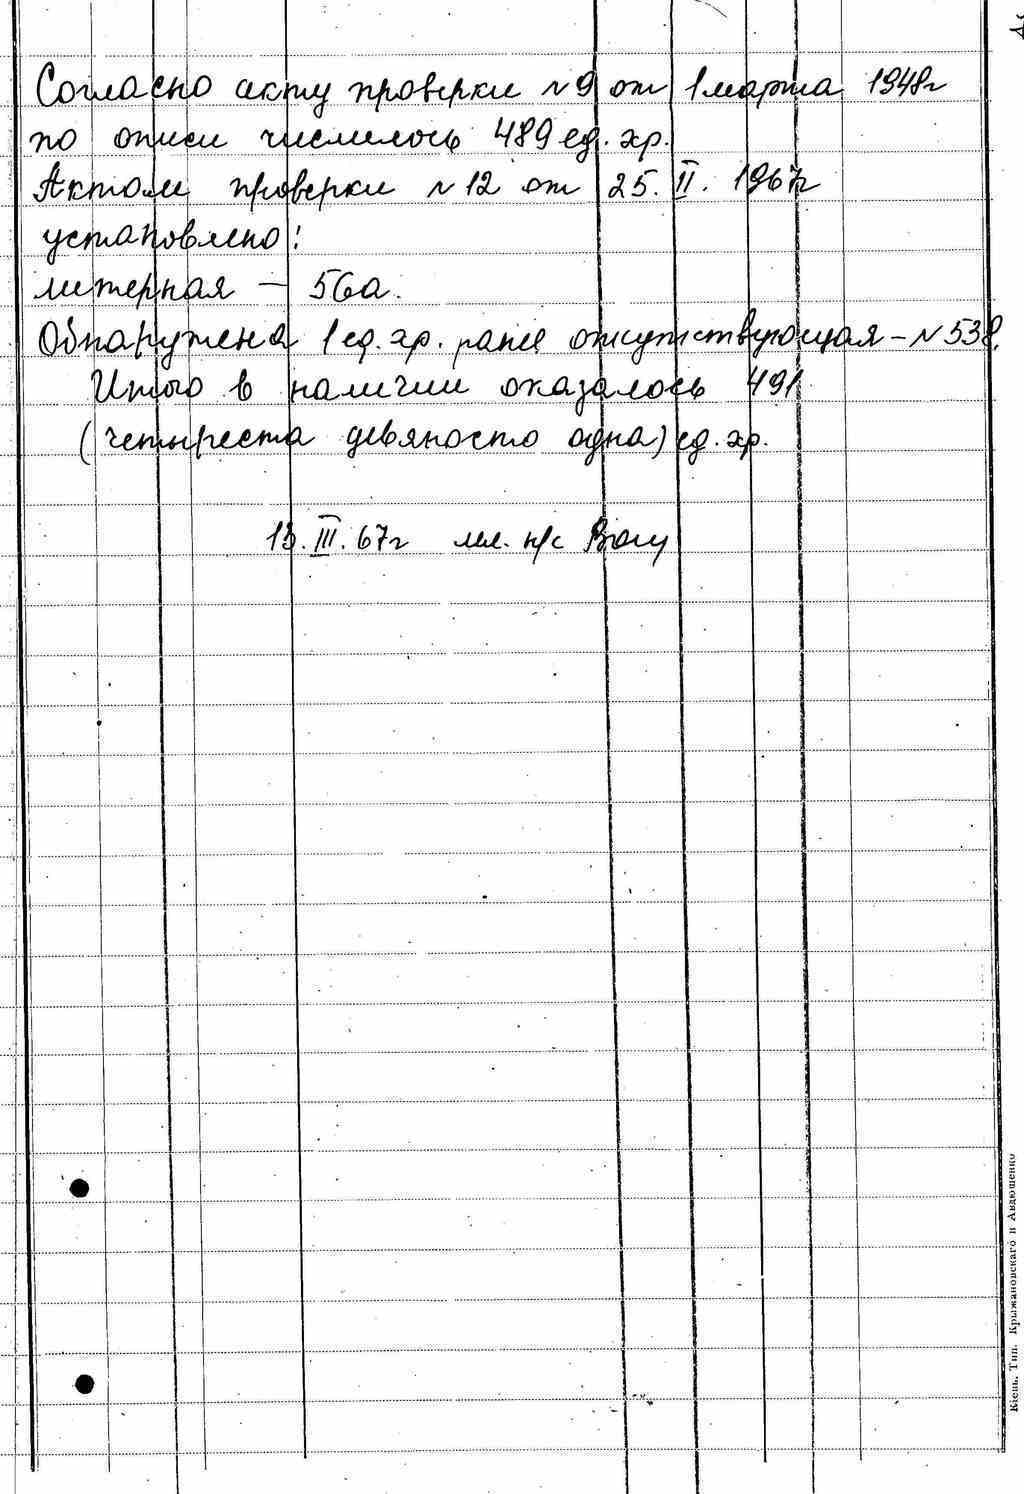 Согласно акту проверки №9 от 1 марта 1948г
по описи числилось 489 ед. хр.
Актом проверки №12 от 25. II. 1967г
установлено:
литерная – 56а.
Обнаружена 1 ед. хр. ранее отсутствующая – №538.
Итого в наличии оказалось 491
(четыреста девяносто одна) ед. хр.
13. III. 67г мл. н/с
Кіевъ, Тип. Крыжановскаго и Авдюшенко